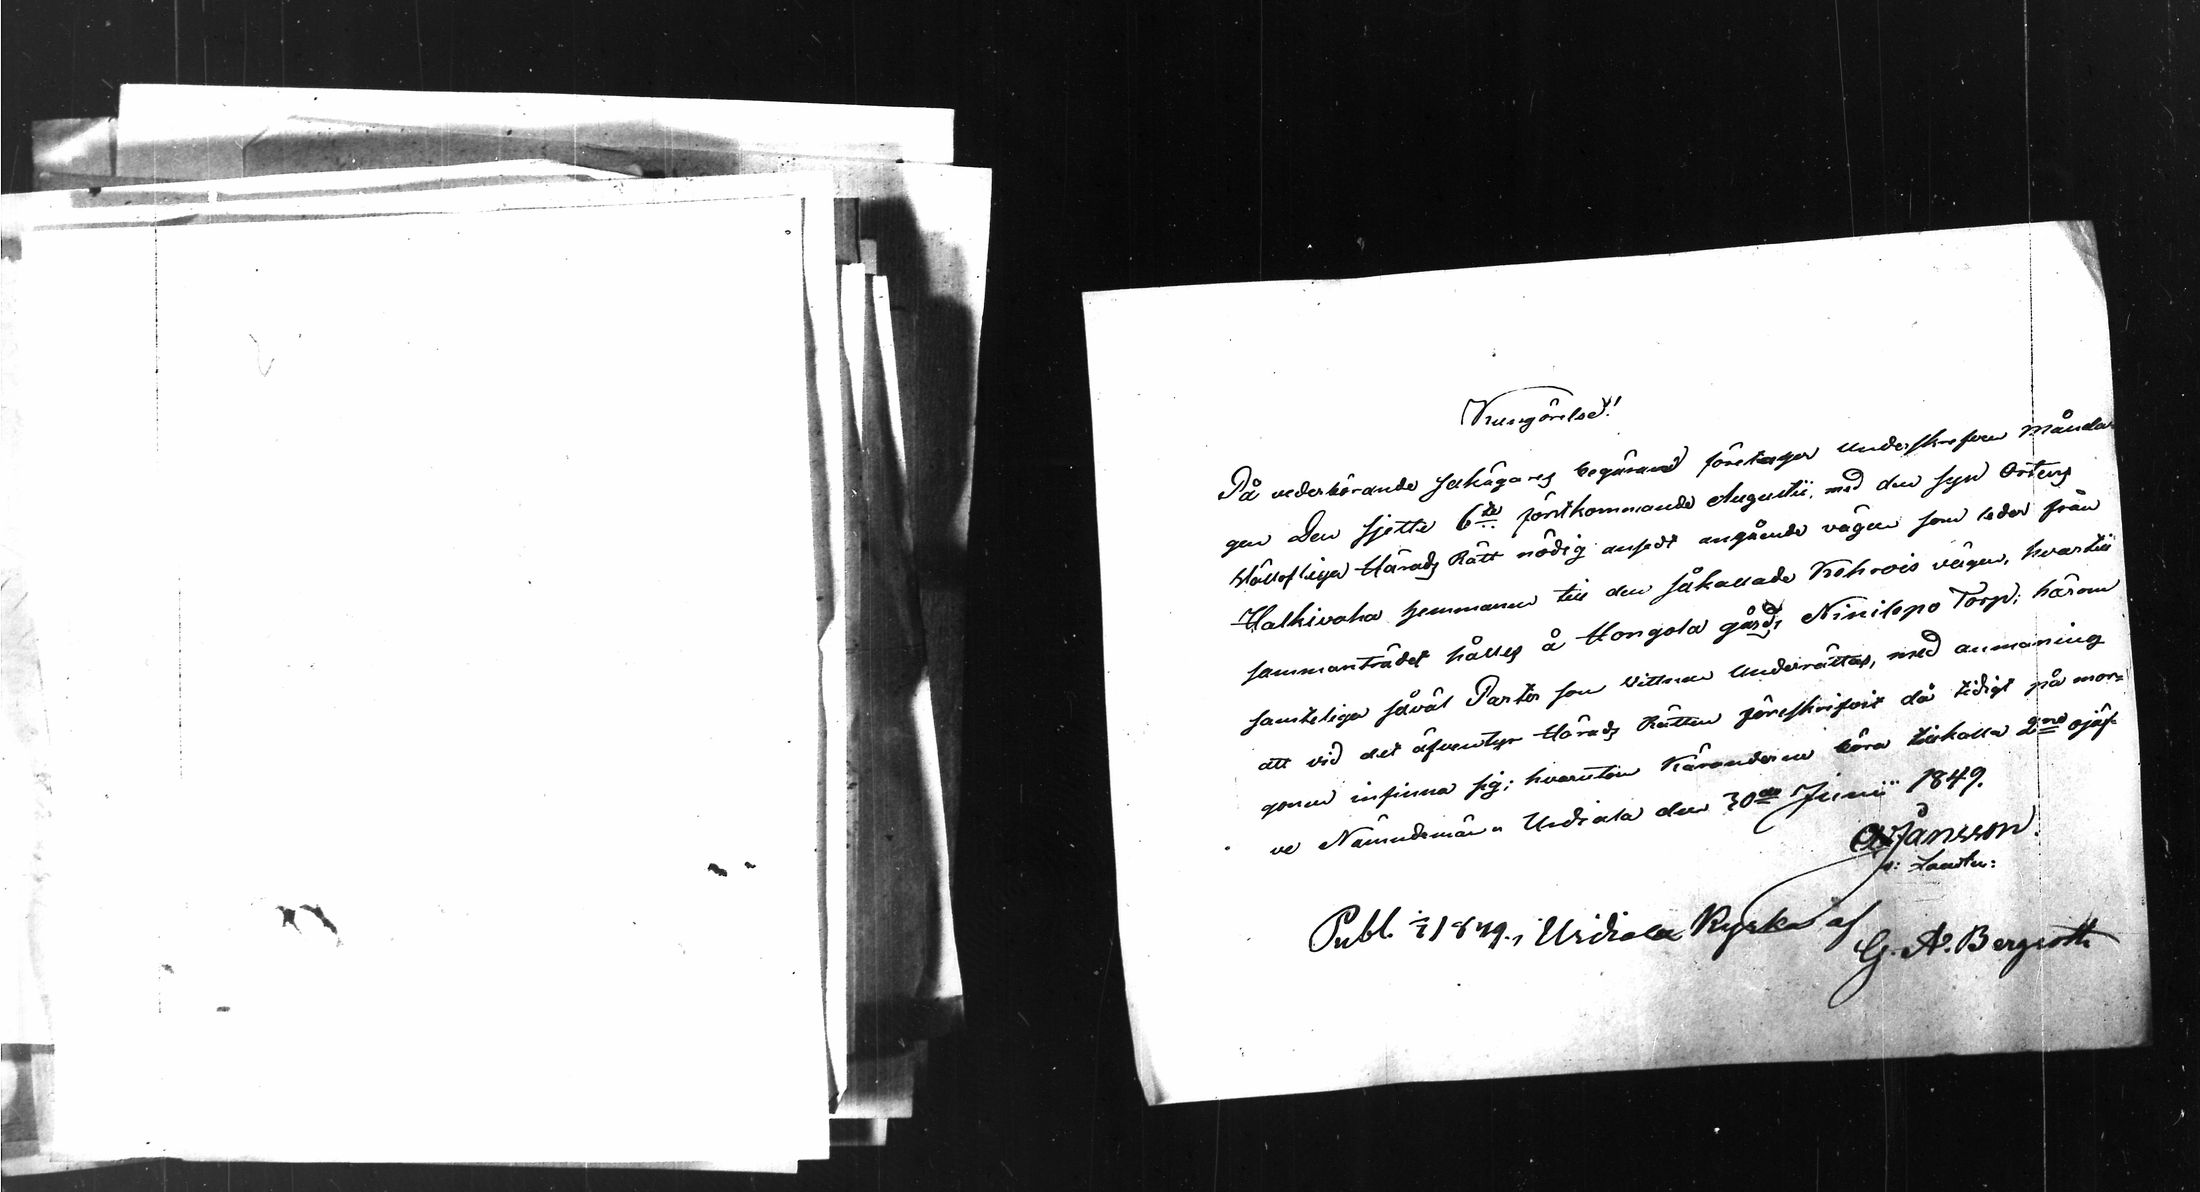 Kungörelse!
På vederbörande sakägares begäran företager Underskrefven Månda-
gen Den sjette 6te förstkommande Augustii, med den syn Ortens
Wällofliga Härads Rätt nödig ansedt angående vägen som leder från
Halkivaha hemmanen till den såkallade Kehrois vägen, hvartill
sammanträdet hålles å Hongola gårds Ninilepo Torp; härom
samtelige såväl Parter som Vittnen Underrättas, med anmaning
att vid det äfventyr Härads Rätten föreskrifvit då tidigt på mor=
gonen infinna sig; hvarutom Käranderne böra tillkalla 2ne ojäf-
ve Nämndemän. Urdiala den 30de Junii 1849.
Jansson.
Publ. 1849, i Urdiala Kyrka af
G. A. Bergroth